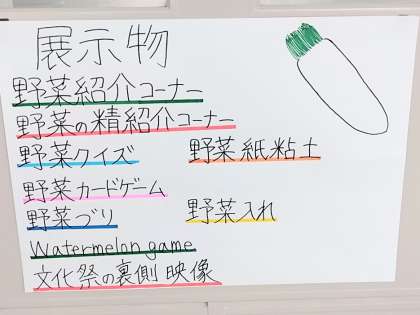 展示物
野菜紹介コーナー
野菜の精紹介コーナー
野菜クイズ 野菜紙粘土
野菜カードゲーム
野菜づり 野菜入れ
Watermelon game
文化祭の裏側映像